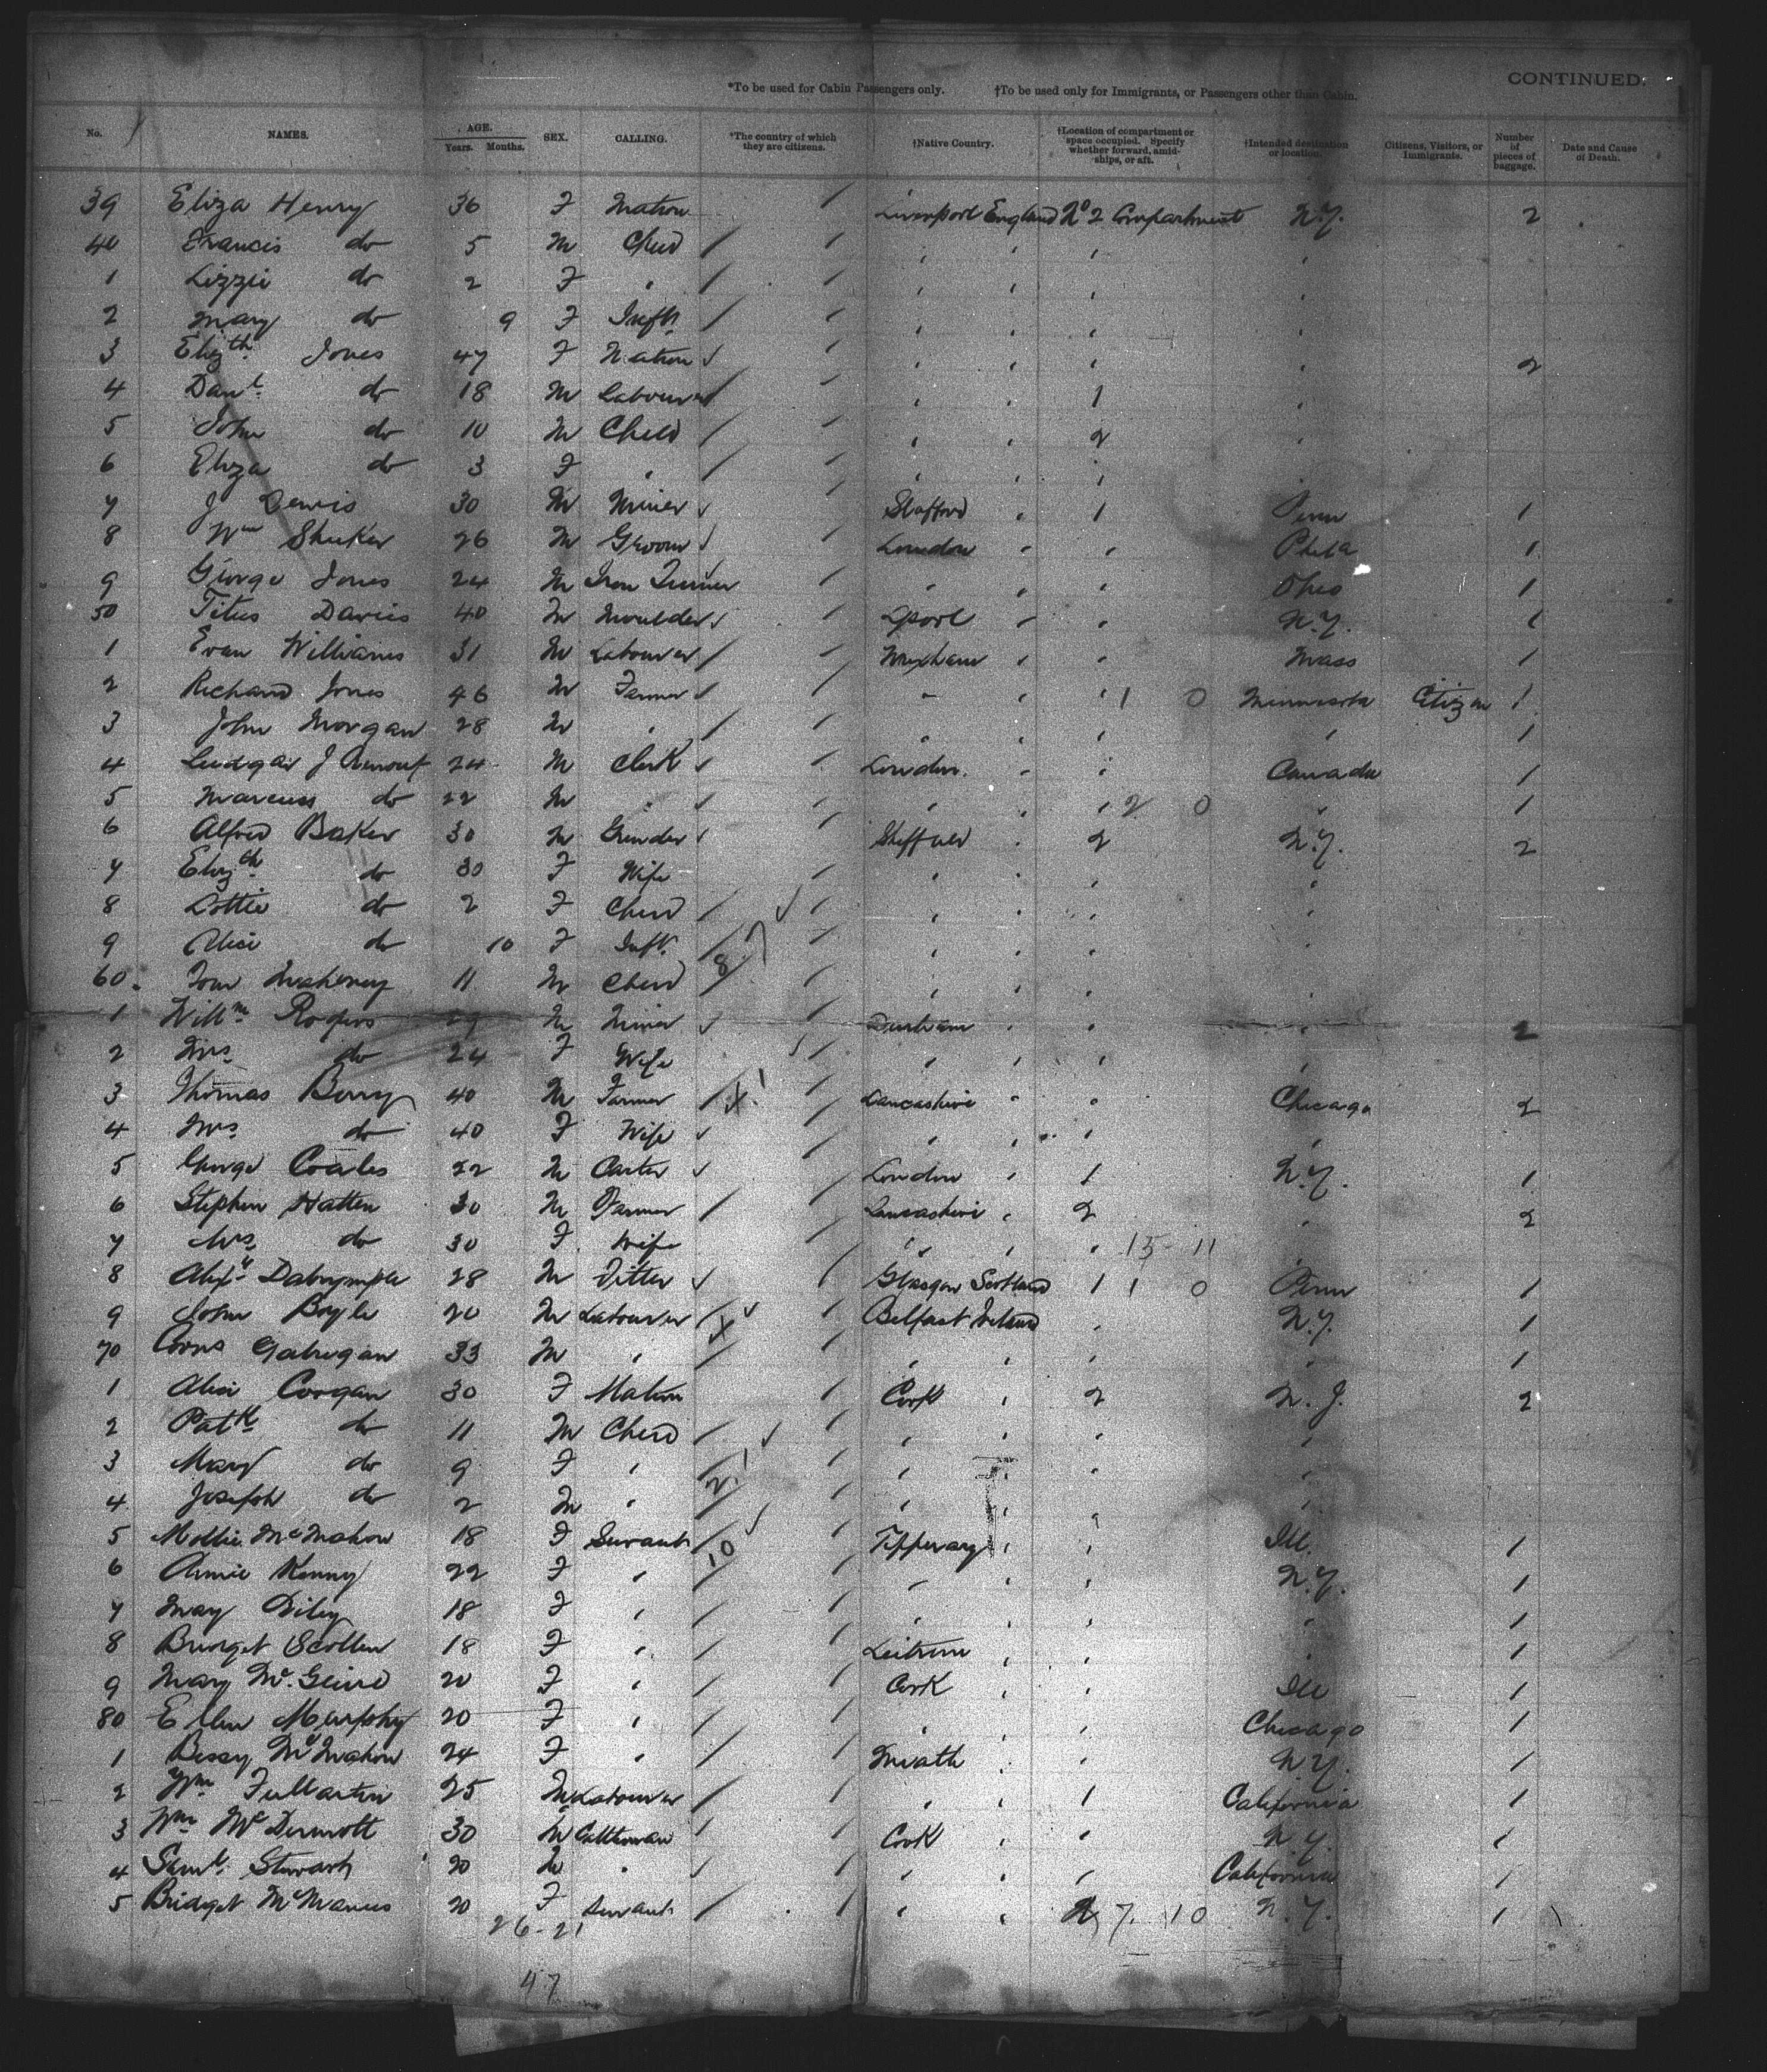 CONTINUED.
*To be used for Cabin Passengers only. †To be used only for Immigrants, or Passengers other than Cabin.
No. NAMES. AGE. Years. Months. SEX. CALLING. *The country of which they are citizens. †Native Country. †Location of compartment or space occupied. Specify whether forward, amid-ships, or aft. †Intended destination or location. Citizens, Visitors, or Immigrants. Number of pieces of baggage. Date and Cause of Death.
39 Eliza Henry 36 F Matron Liverpool England No 2 Compartment N.Y. 2
40 Francis do 5 M Child
1 Lizzie do 2 F "
2 Mary do 9 F Inft
3 Elizth Jones 47 F Matron 2
4 Danl do 18 M Labourer 1
5 John do 10 M Child 2
6 Eliza do 3 F "
7 J Lewis 30 M Miner Stafford " 1 Penn 1
8 Wm 26 M Groom London " " Phila 1
9 George Jones 24 M Iron Turner " " " Ohio 1
50 Titus Davies 40 M Moulder Lpool " " N.Y. 1
1 Evan Williams 31 M Labourer Wrexham " " Mass 1
2 Richard Jones 46 M Farmer " " " 1 0 Minnesota Citizen 1
3 John Morgan 28 M " " " " " 1
4 J 24 M Clerk London " " Canada 1
5 Marcus do 22 M " " " " 2 0 " 1
6 Alfred Baker 30 M Grinder Sheffield " 2 N.Y. 2
7 Elizth do 30 F Wife " " "
8 Lottie do 2 F Child " " "
9 Alice do 10 F Inft 8 " " "
60 Tom 11 M Child " " "
1 Willm Rogers M Miner Durham " " " 2
2 Mrs do 24 F Wife " " " "
3 Thomas Berry 40 M Farmer X Lancashire " " Chicago 2
4 Mrs do 40 F Wife " " " "
5 George Coales 22 M Carter London " 1 N.Y. 1
6 Stephen Hatten 30 M Farmer Lancashire " 2 " 2
7 Mrs do 30 F Wife " " " 15-11 "
8 Alexr Dalrymple 28 M Fitter Glasgow Scotland 1 1 0 Penn 1
9 John Boyle 20 M Labourer X Belfast Ireland " N.Y. 1
70 Gahegan 33 M " " " " " 1
1 Alice Corgan 30 F Matron Cork " 2 N.J. 2
2 Patk do 11 M Child " " " "
3 Mary do 9 F " 2 " " " "
4 Joseph do 2 M " " " " "
5 Mollie McMahon 18 F Servant 10 Tipperary " " Ill. 1
6 Annie Kenny 22 F " " " " N.Y. 1
7 May 18 F " " " " " 1
8 Bridget Scollen 18 F " Leitrim " " " 1
9 Mary 20 F " Cork " " Ill 1
80 Ellen Murphy 20 F " " " " Chicago 1
1 Bessy McMahon 24 F " Meath " " N.Y. 1
2 Wm Fullartin 25 M Labourer " " 1 California 1
3 Wm McDermott 30 M Cattleman Cork " " N.Y. 1
4 Saml Stewart 20 M " " " " California 1
5 Bridget McManus 20 F Servant " " 2 7 10 N.Y. 1
26-21
47